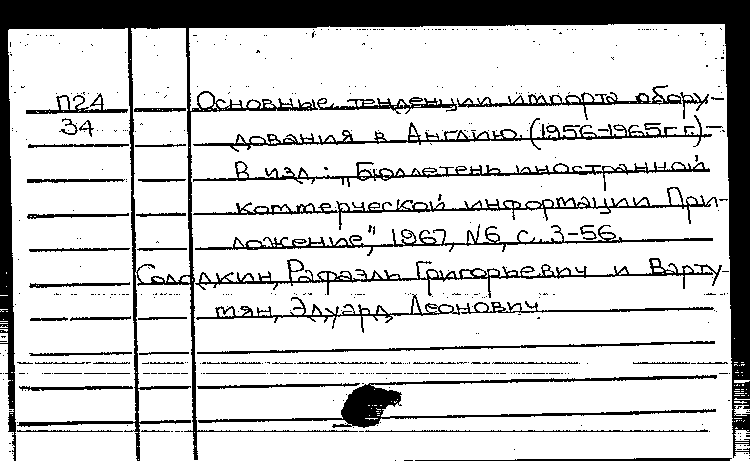 П24 Основные тенденции импорта обору-
34 дования в Англию (1956-1965г.г.)-
В изд.: „Бюллетень иностранной
коммерческой информации При-
ложение", 1967, N6, с. 3-56.
Солодкин, Рафаэль Григорьевич и Варту-
тян, Эдуард Леонович